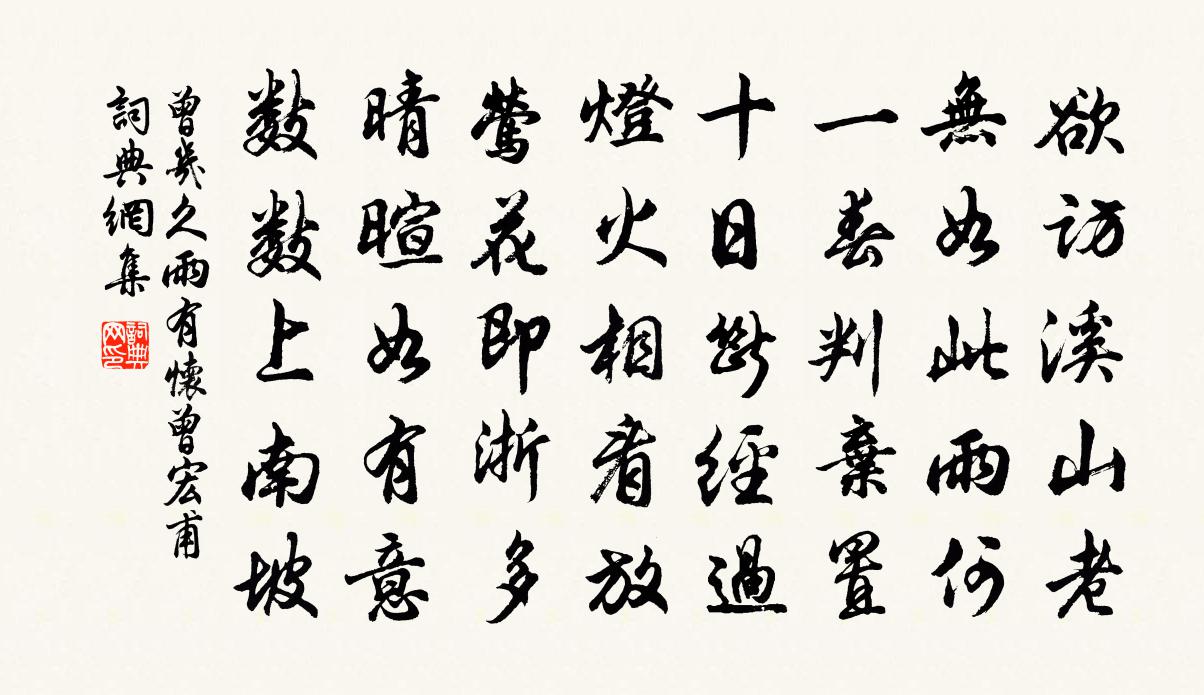 欲訪溪山老
無如此雨何
一春判棄置
十日斷經過
燈火相看放
鶯花即漸多
晴暄如有意
数数上南坡
曾幾久雨有懷曾宏甫
詞典網集
詞典網印